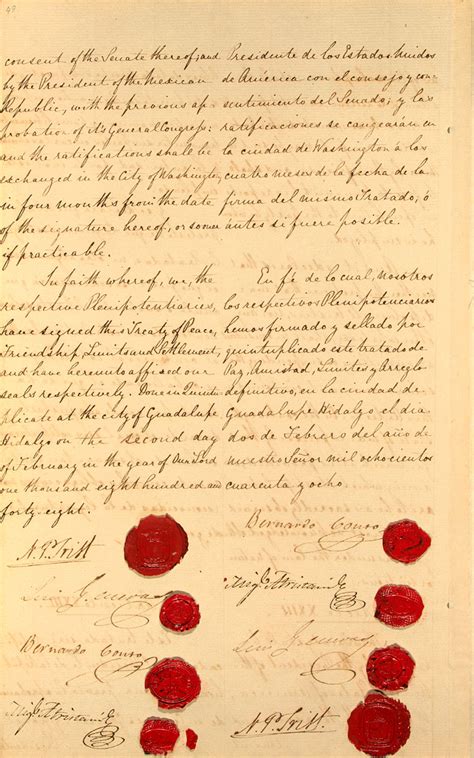 49
consent of the Senate thereof; and
by the President of the Mexican
Republic, with the previous ap-
probation of it's General Congress:
and the ratifications shall be
exchanged in the City of Washington,
in four months from the date
of the signature hereof, or sooner
if practicable.
In faith whereof, we, the
respective Plenipotentiaries,
have signed this Treaty of Peace,
Friendship, Limits and Settlement,
and have hereunto affixed our
seals respectively. Done in Quintu-
plicate at the city of Guadalupe
Hidalgo on the second day
of February in the year of Our Lord
one thousand eight hundred and
forty eight.
N. P. Trist
Luis G. Cuevas
Bernardo Couto
Migl. Atristain
Presidente de los Estados Unidos
de America con el consejo y con-
sentimiento del Senado; y las
ratificaciones se cangearán en
la ciudad de Washington á los
cuatro meses de la fecha de la
firma del mismo Tratado, ó
ántes si fuere posible.
En fé de lo cual, nosotros
los respectivos Plenipotenciarios
hemos firmado y sellado por
quintuplicado este tratado de
Paz, Amistad, Limites y Arreglo
definitivo, en la ciudad de
Guadalupe Hidalgo el dia
dos de Febrero del año de
nuestro Señor mil ochocientos
cuarenta y ocho.
Bernardo Couto
Migl. Atristain
Luis G. Cuevas
N. P. Trist